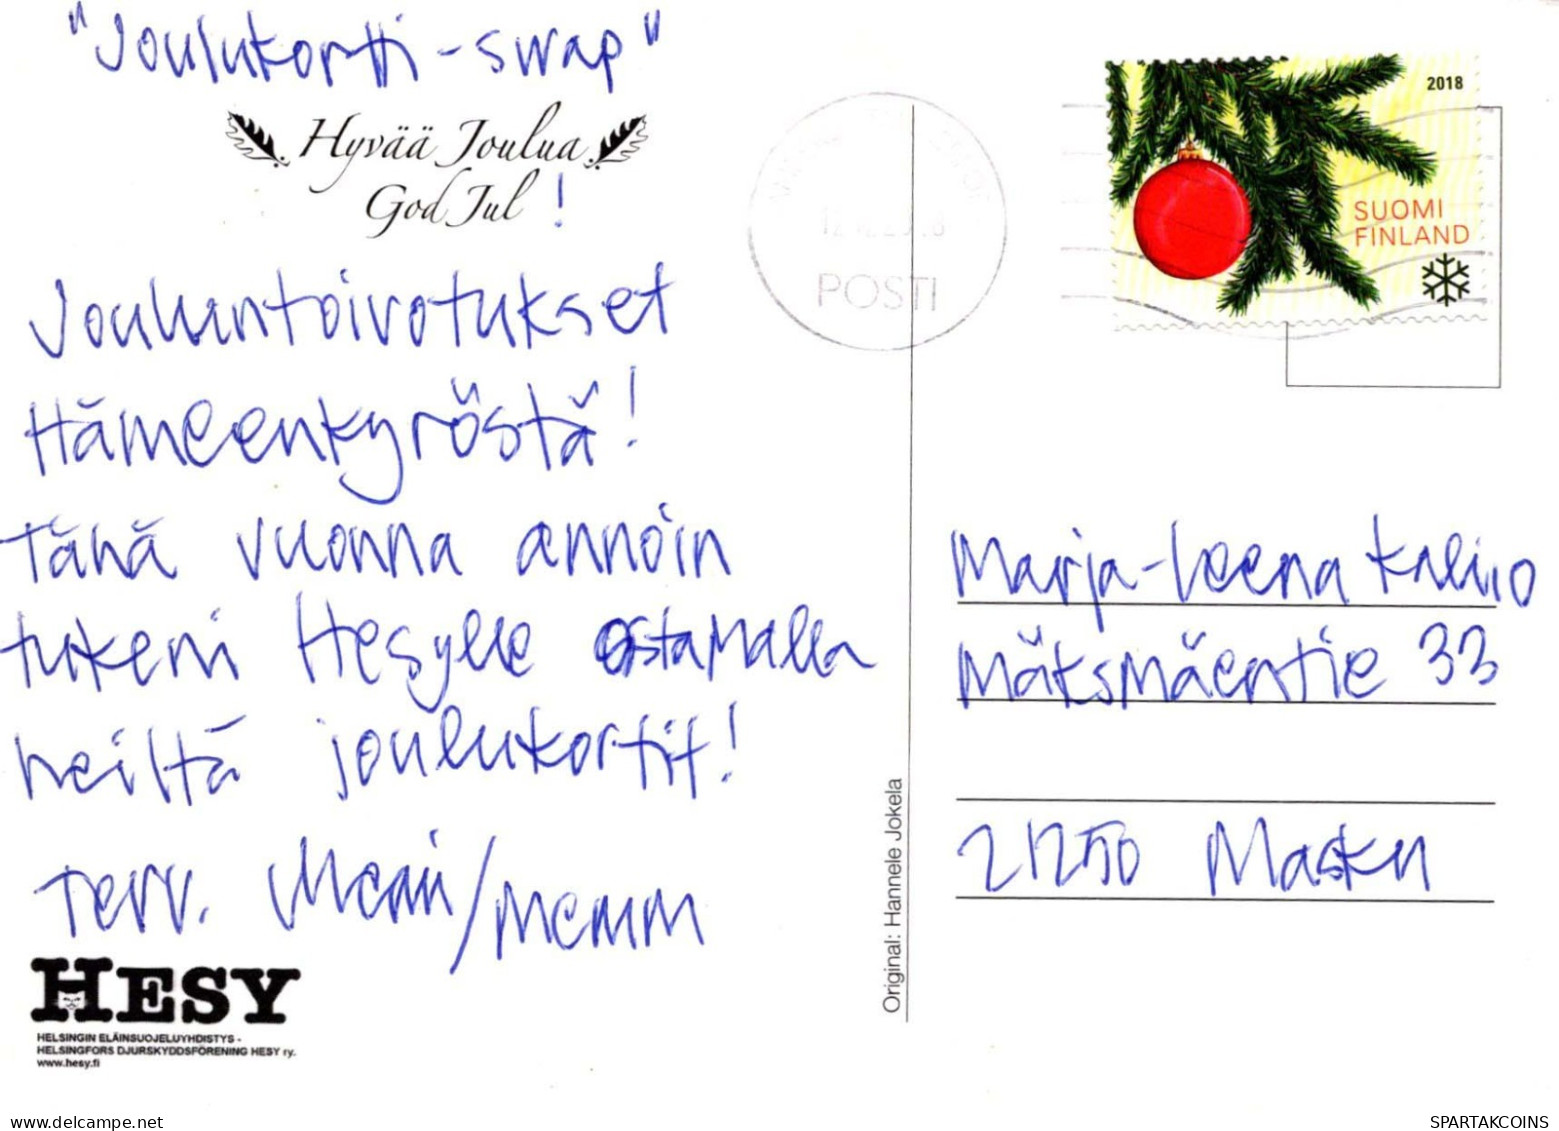 "Joulukortti-swap"
Hyvää Joulua
God Jul !
Jouluntoivotukset
Hämeenkyröstä!
Tänä vuonna annoin
tukeni Hesylle ostamalla
heiltä joulukortit!
Terv. /
HESY
HELSINGIN ELÄINSUOJELUYHDISTYS -
HELSINGFORS DJURSKYDDSFÖRENING HESY ry.
www.hesy.fi
Original: Hannele Jokela
POSTI
2018
SUOMI
FINLAND
Marja-Leena Kallio
Mäksmäentie 33
21250 Masku
SPARTAKCOINS